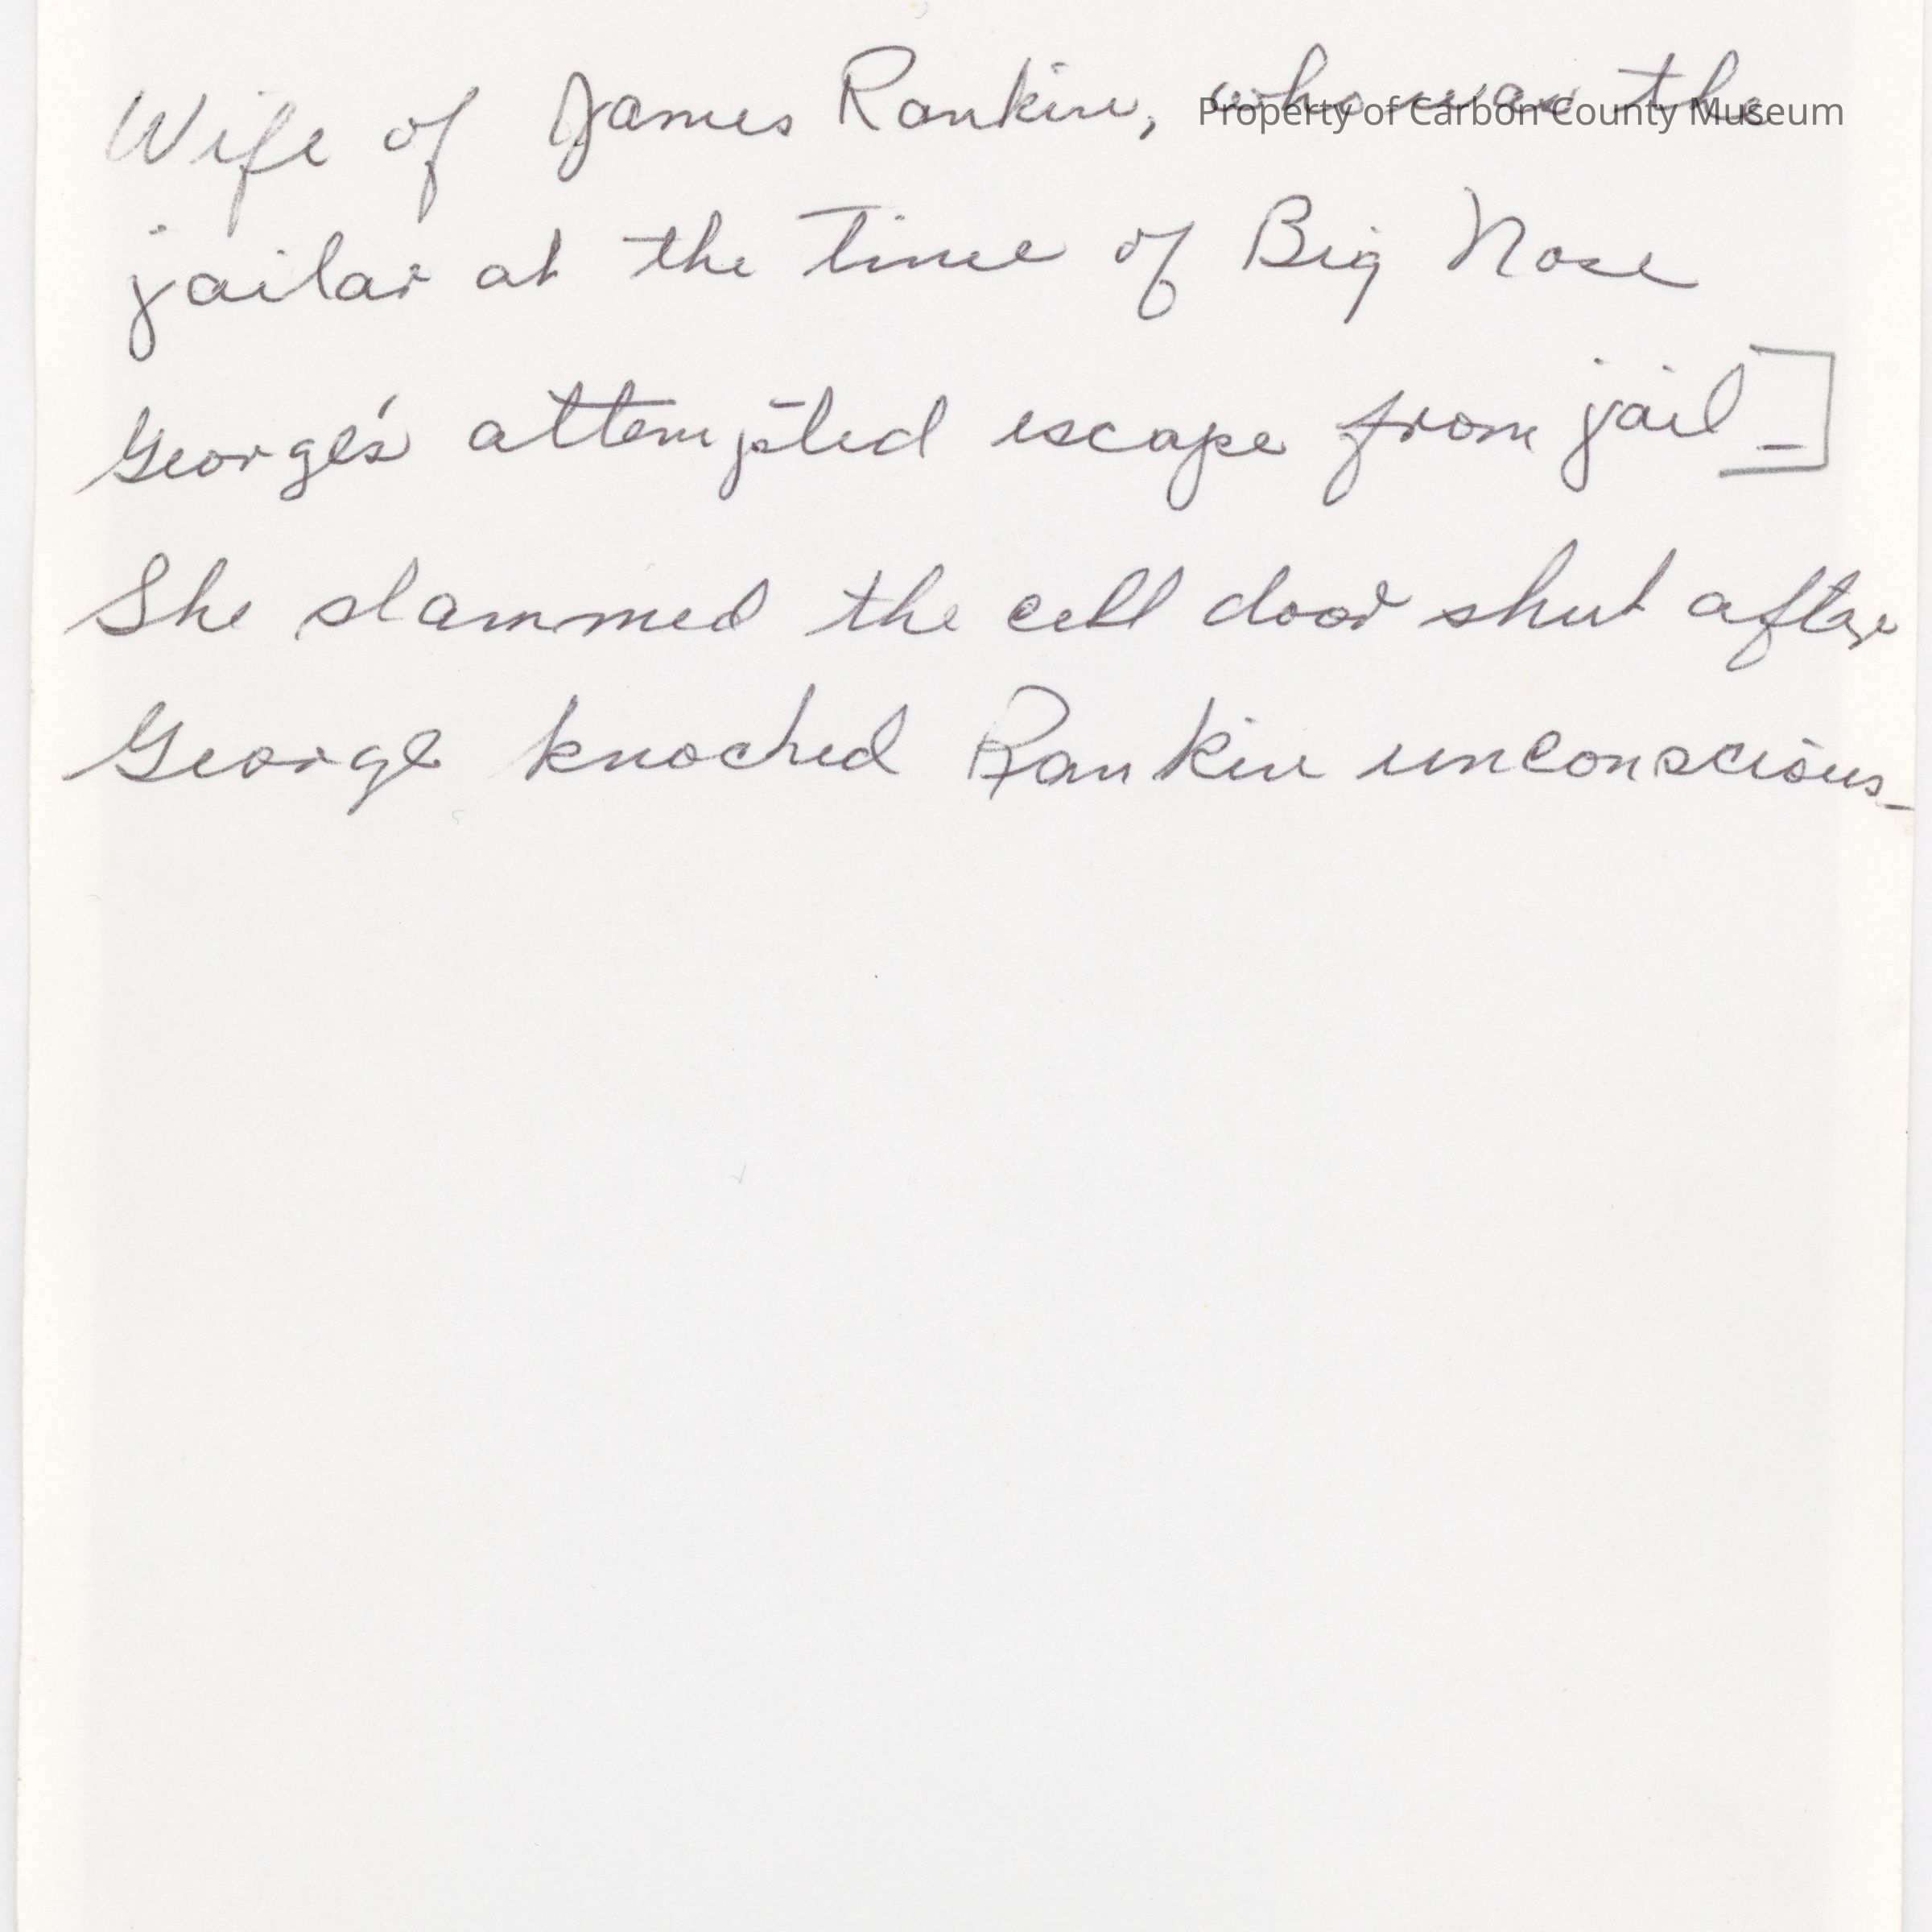 Wife of James Rankin, who was the
Property of Carbon County Museum
jailar at the time of Big Nose
George's attempted escape from jail_]
She slammed the cell door shut after
George knocked Rankin unconscious_